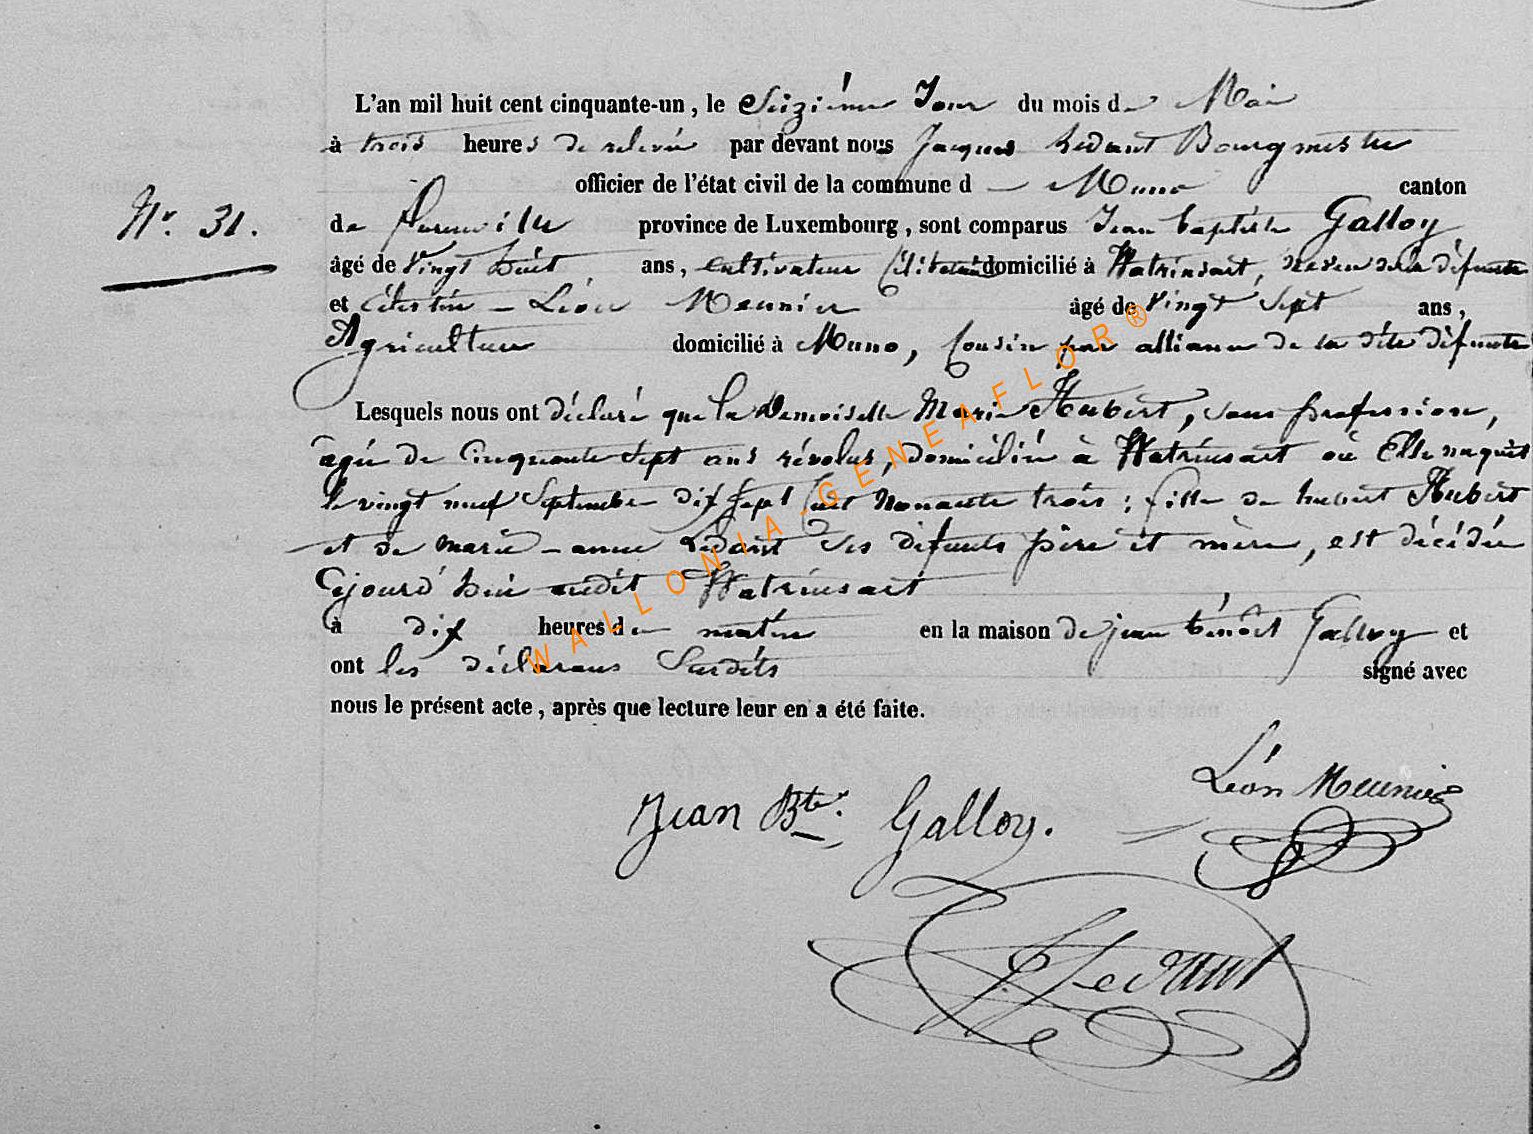 L'an mil huit cent cinquante-un, le Seizième Jour du mois de Mai
à trois heures de relevée par devant nous Jacques Ledant Bourgmestre
officier de l'état civil de la commune d — Muno canton
N.r 31. de Florenville province de Luxembourg, sont comparus Jean baptiste Galloy
âgé de Vingt huit ans, cultivateur Célibataire domicilié à Watrinsart, neveu de la défunte
et Célestin - Léon Meunier âgé de Vingt Sept ans,
Agriculteur domicilié à Muno, Cousin par alliance de la dite défunte
Lesquels nous ont déclaré que la Demoiselle Marie Hubert, sans profession,
âgée de Cinquante Sept ans révolus, domiciliée à Watrinsart où Elle naquit
le vingt neuf Septembre dix Sept Cent Nonante trois ; fille de hubert Hubert
et de marie - anne Ledant Ses défunts père et mère, est décédée
Cejourd'hui audit Watrinsart
à dix heures du matin en la maison de jean benoît Galloy et
ont les déclarans Susdits signé avec
nous le présent acte, après que lecture leur en a été faite.
Léon Meunier
Jean Bte. Galloy.
J. Ledant
WALLONIA-GENEAFLOR®